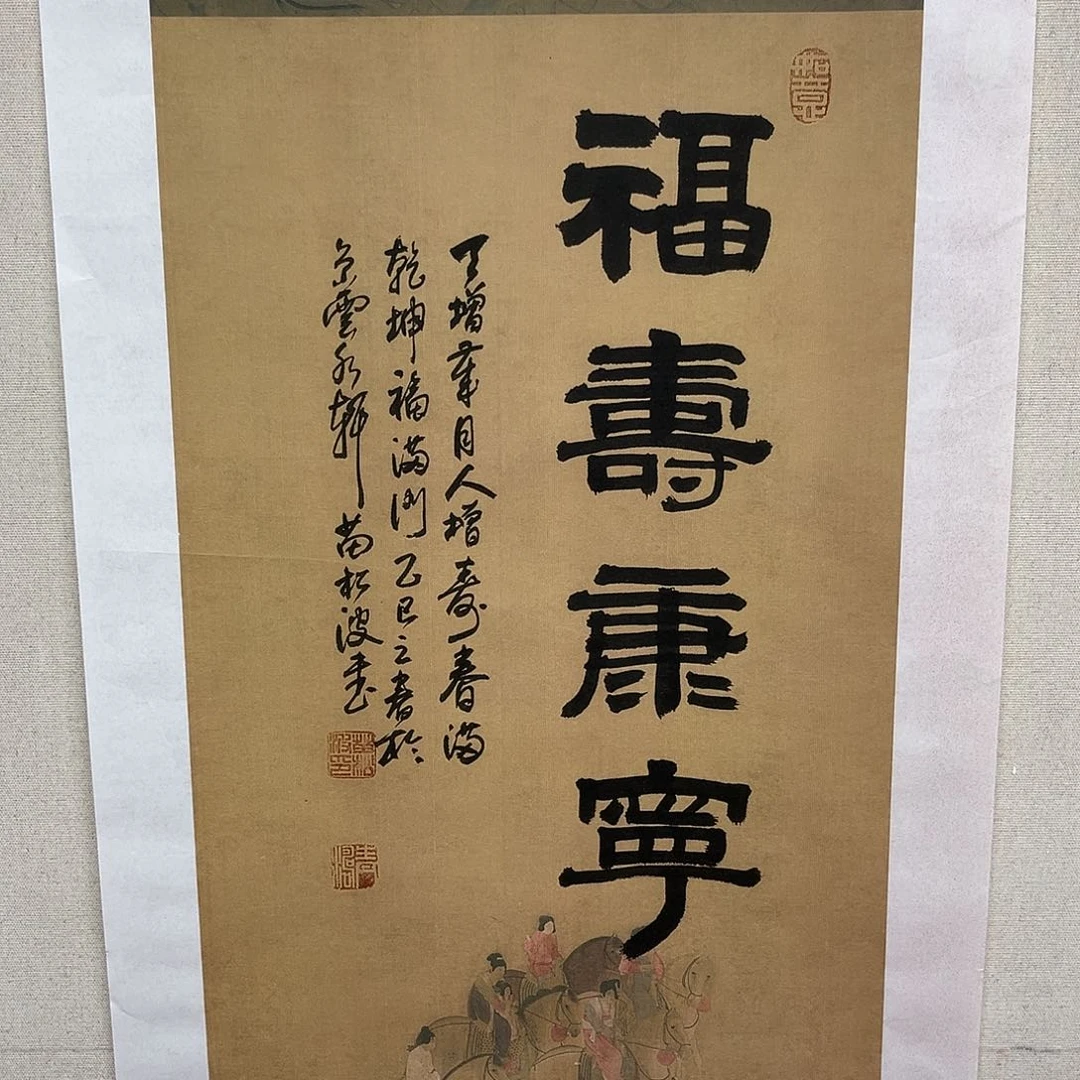 福壽康寧
天增歲月人增壽春滿
乾坤福滿門乙巳之春於
京雲水軒苗松波書